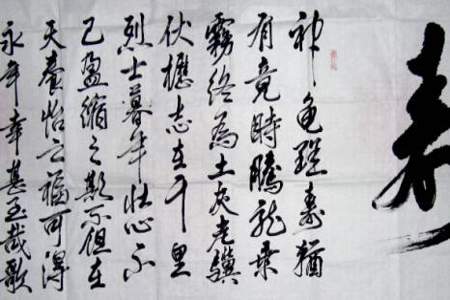 寿
神龟雖壽猶
有竟時騰龙乘
霧终為土灰老驥
伏櫪志在千里
烈士暮年壮心不
已盈縮之期不但在
天養怡之福可得
永年幸甚至哉歌